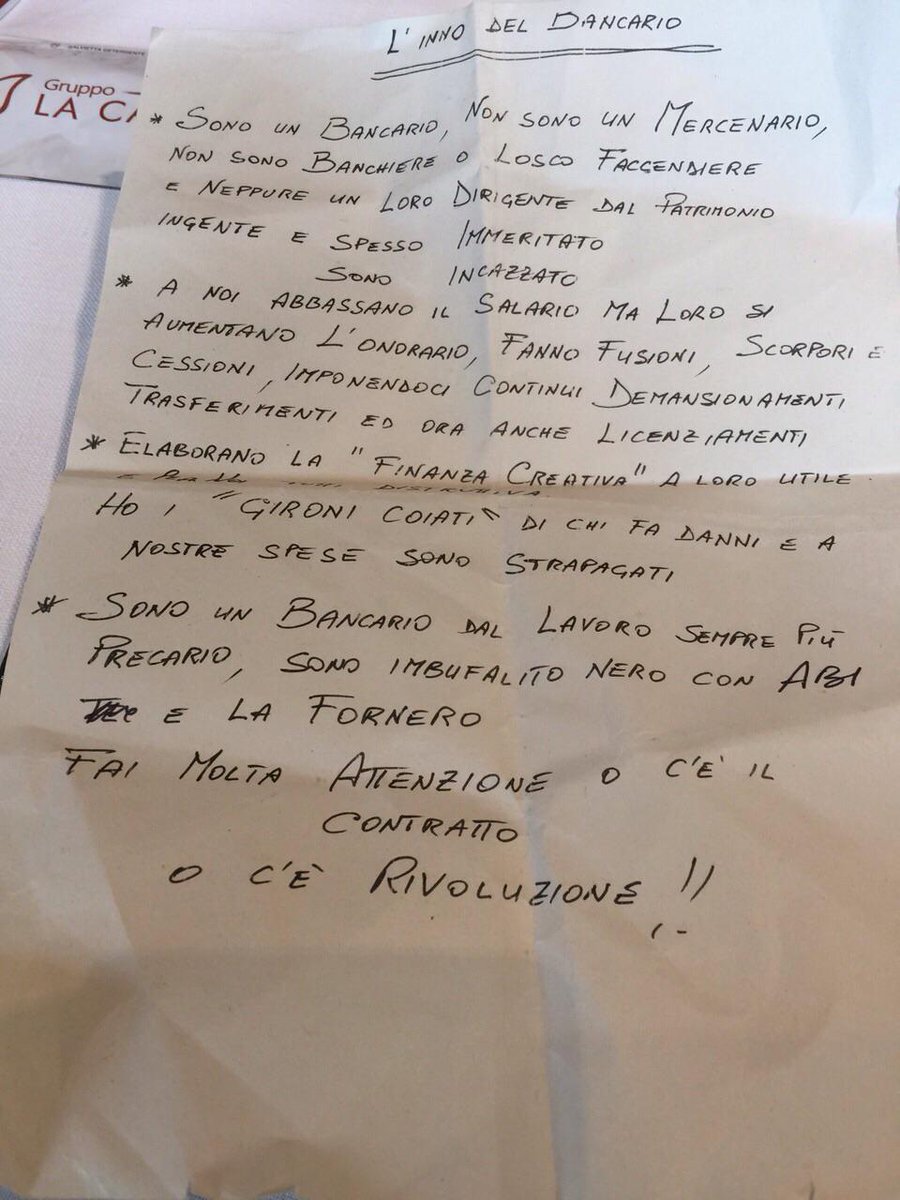 L'INNO DEL BANCARIO
Gruppo
LA CA
* SONO UN BANCARIO, NON SONO UN MERCENARIO,
NON SONO BANCHIERE O LOSCO FACCENDIERE
E NEPPURE UN LORO DIRIGENTE DAL PATRIMONIO
INGENTE E SPESSO IMMERITATO
SONO INCAZZATO
* A NOI ABBASSANO IL SALARIO MA LORO SI
AUMENTANO L'ONORARIO, FANNO FUSIONI, SCORPORI E
CESSIONI, IMPONENDOCI CONTINUI DEMANSIONAMENTI
TRASFERIMENTI ED ORA ANCHE LICENZIAMENTI
* ELABORANO LA "FINANZA CREATIVA" A LORO UTILE
HO I "GIRONI COIATI" DI CHI FA DANNI E A
NOSTRE SPESE SONO STRAPAGATI
* SONO UN BANCARIO DAL LAVORO SEMPRE PIÙ
PRECARIO, SONO IMBUFALITO NERO CON ABI
E LA FORNERO
FAI MOLTA ATTENZIONE O C'È IL
CONTRATTO
O C'È RIVOLUZIONE !!